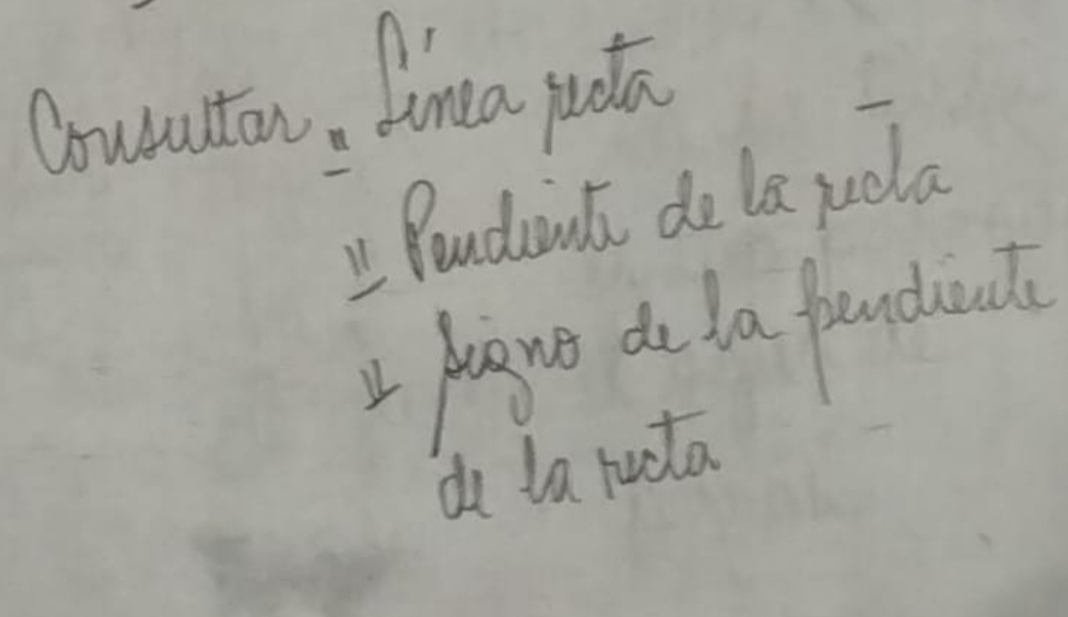 Consultar = Línea recta
= Pendiente de la recta
= signo de la pendiente
de la recta